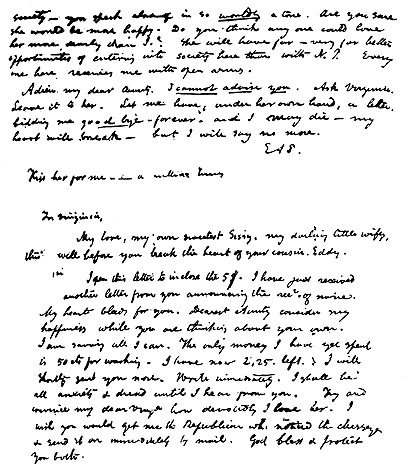 society — you speak in so worldly a tone. Are you sure
she would be more happy. Do you think any one could love
her more dearly than I? She will have far — very far better
opportunities of entering into society here than with N. P. Every
one here receives me with open arms.
Adieu my dear Aunty. I cannot advise you. Ask Virginia.
Leave it to her. Let me have, under her own hand, a letter,
bidding me good bye — forever — and I may die — my
heart will break — but I will say no more.
EAP.
Kiss her for me — a million times
For Virginia,
My love, my own sweetest Sissy, my darling little wifey,
think well before you break the heart of your cousin. Eddy.
I open this letter to inclose the 5$. I have just received
another letter from you announcing the rect. of mine.
My heart bleeds for you. Dearest Aunty consider my
happiness while you are thinking about your own.
I am saving all I can. The only money I have yet spent
is 50 cts for washing. I have now 2,25. left. I will
shortly send you more. Write immediately. I shall be
all anxiety & dread until I hear from you. Try and
convince my dear Virga. how devotedly I love her. I
wish you would get me the Republican wh. noticed the
& send it on immediately by mail. God bless & protect
you both.